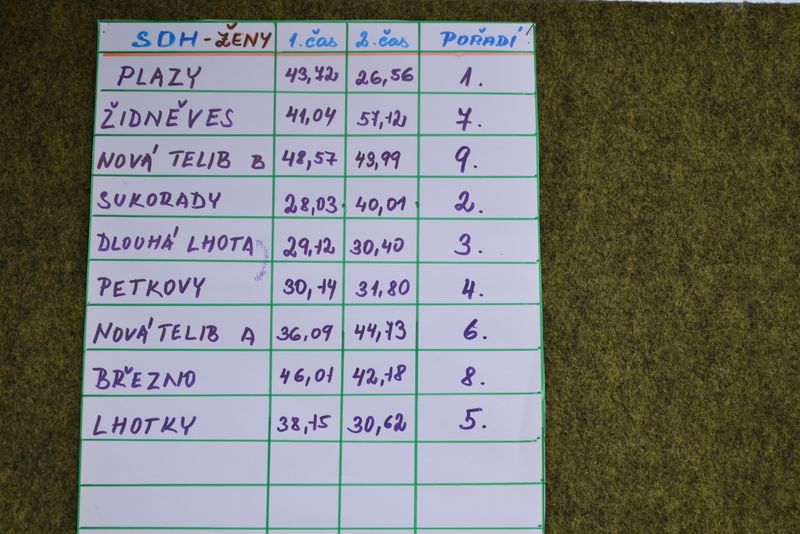 SDH-ŽENY 1.čas 2.čas POŘADÍ
PLAZY 43,72 26,56 1.
ŽIDNĚVES 41,04 57,12 7.
NOVÁ TELIB B 48,57 43,99 9.
SUKORADY 28,03 40,01 2.
DLOUHÁ LHOTA 29,12 30,40 3.
PETKOVY 30,14 31,80 4.
NOVÁ TELIB A 36,09 44,73 6.
BŘEZNO 46,01 42,18 8.
LHOTKY 38,15 30,62 5.